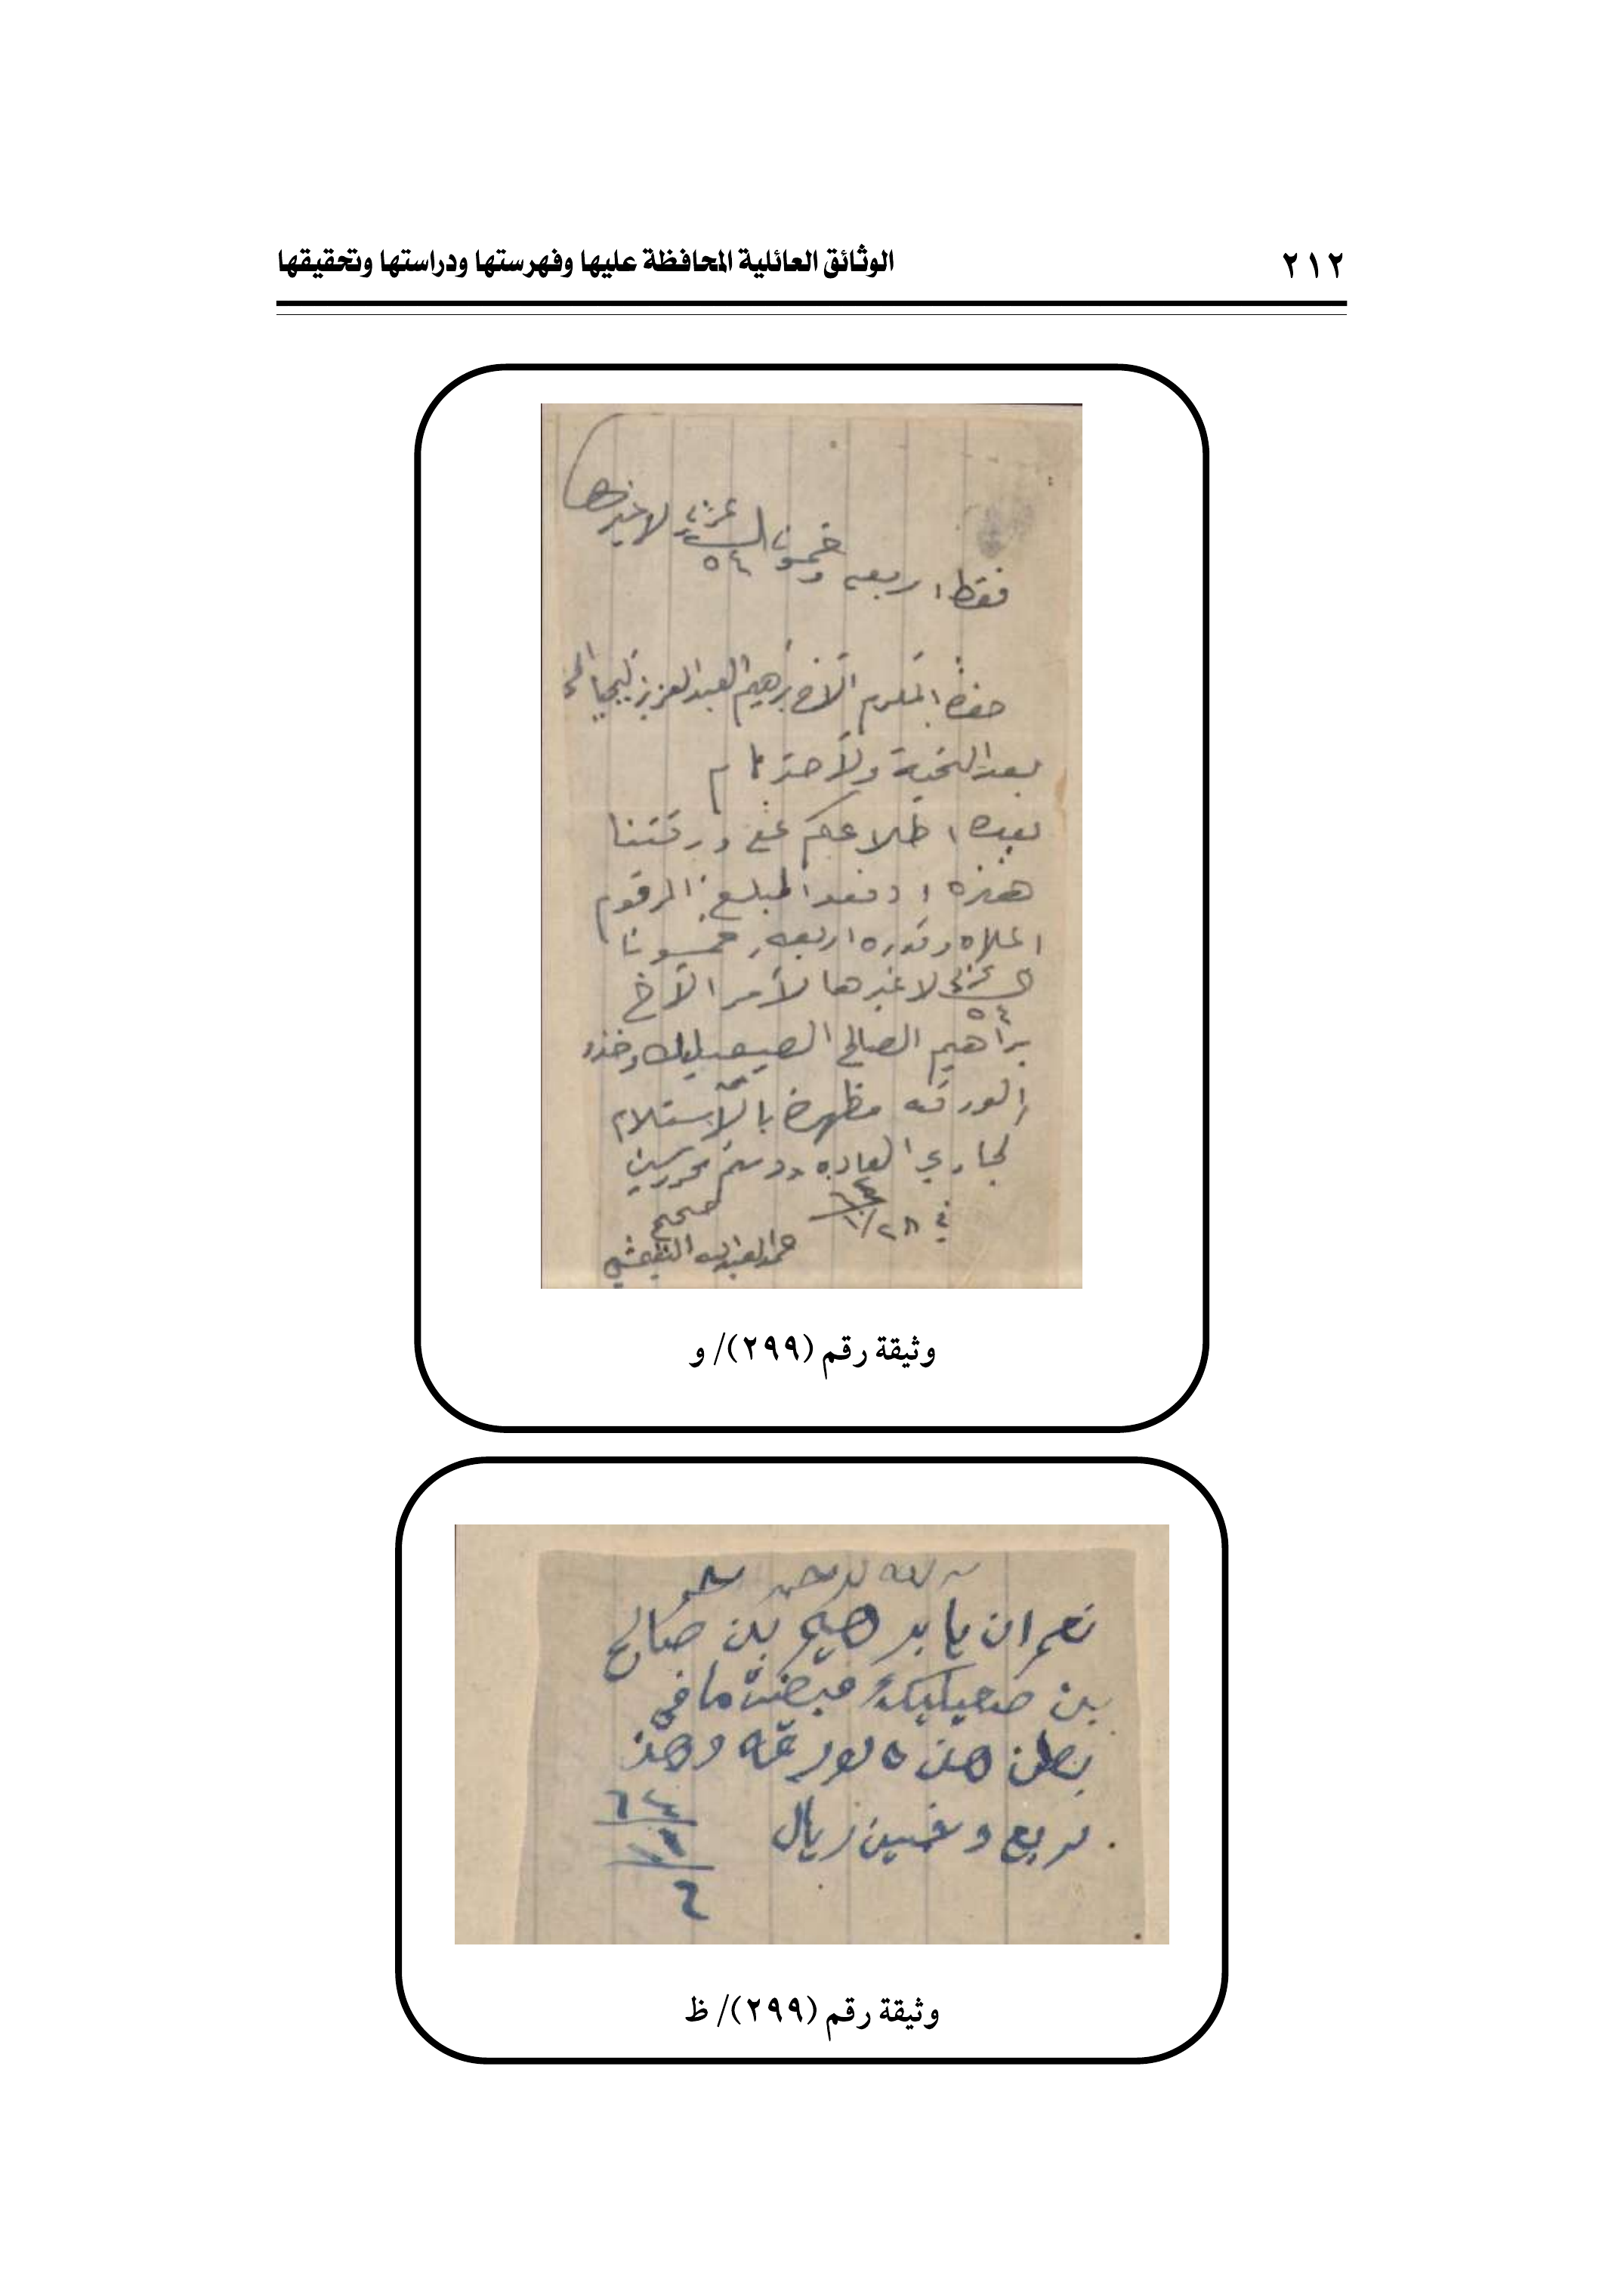 ٢١٢
الوثائق العائلية المحافظة عليها وفهرستها ودراستها وتحقيقها
فقط اربعه وخمسونا ريال عربي لاغيرها
٥٤
حضرة المكرم الأخ برهيم العبدالعزيز اليحيا
بعد التحية ولأحترام
بعده اطلاعكم على ورقتنا
هذه ادفعوا المبلغ المرقوم
اعلاه وقدره اربعه وخمسونا
ريال عربي لاغيرها لأمر الأخ
٥٤
براهيم الصالح الصعيليك وخذو
الورقه مظهرة بالأستلام
لجاري العاده ودمتم محروسين
في ٢٨/١٠
صحيح
حمد العبدالله النغيمشي
وثيقة رقم (٢٩٩)/ و
نعم انا يا برهيم بن صالح
بن صعيليك قبضت ما في
بطن هذه لورقه وهذ
ربع وخمسين ريال
وثيقة رقم (٢٩٩)/ ظ